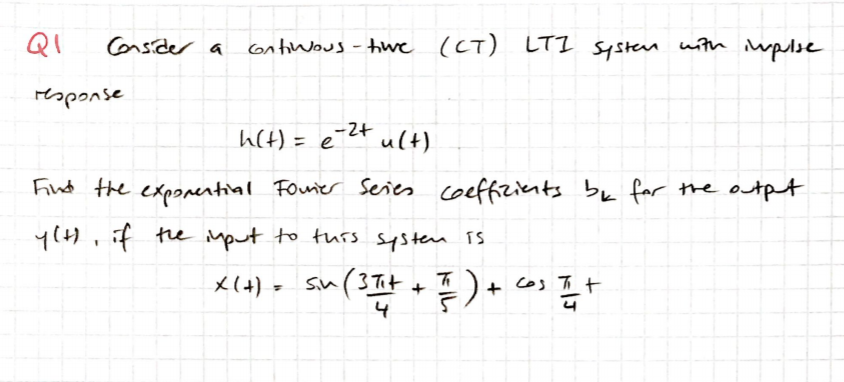 Q1 Consider a continuous-time (CT) LTI system with impulse
response
h(t) = e^{-2t} u(t)
Find the exponential Fourier Series coefficients b_k for the output
y(t), if the input to this system is
x(t) = sin(3πt/4 + π/5) + cos π/4 t